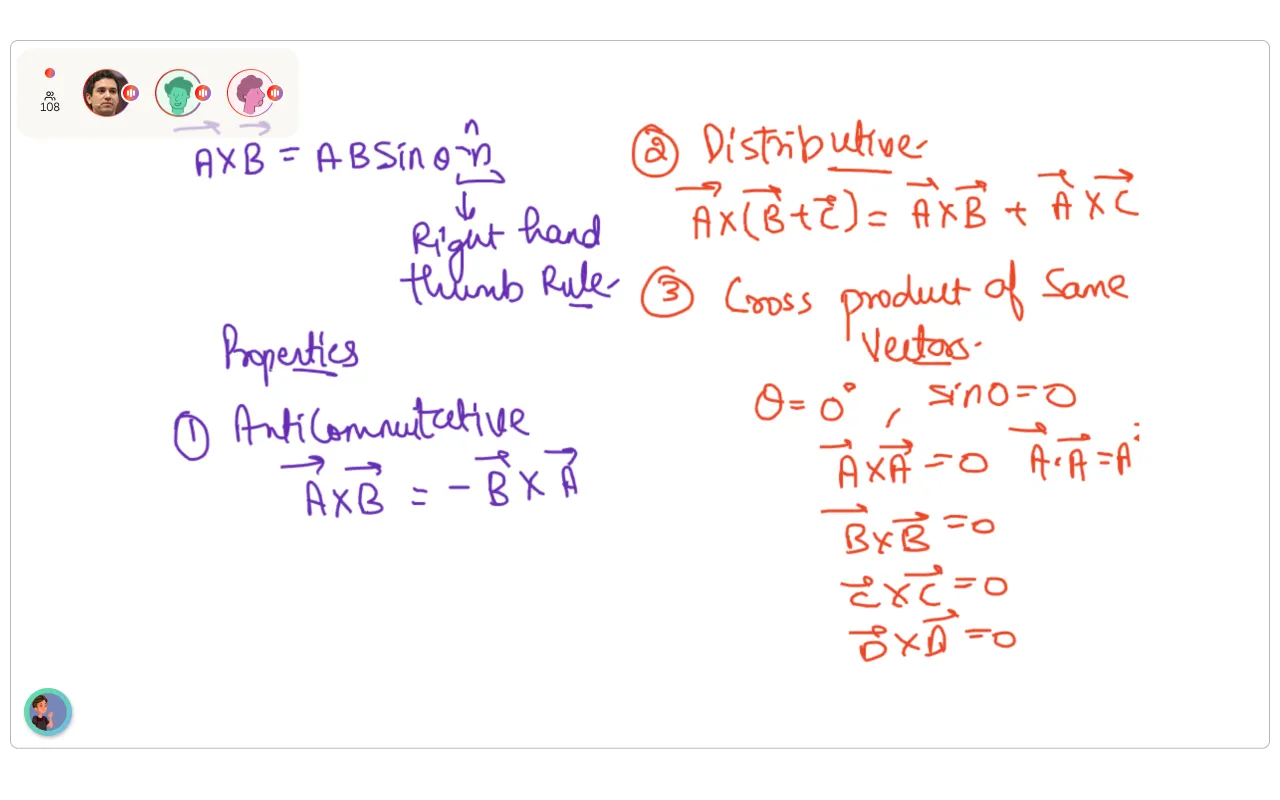 108
A⃗ × B⃗ = A B Sin θ n̂
↓
Right hand
thumb Rule
Properties
① Anticommutative
A⃗ × B⃗ = - B⃗ × A⃗
② Distributive
A⃗ × (B⃗ + C⃗) = A⃗ × B⃗ + A⃗ × C⃗
③ Cross product of Same
Vectors.
θ = 0° , sin 0 = 0
A⃗ × A⃗ = 0 A⃗ · A⃗ = A²
B⃗ × B⃗ = 0
C⃗ × C⃗ = 0
D⃗ × D⃗ = 0